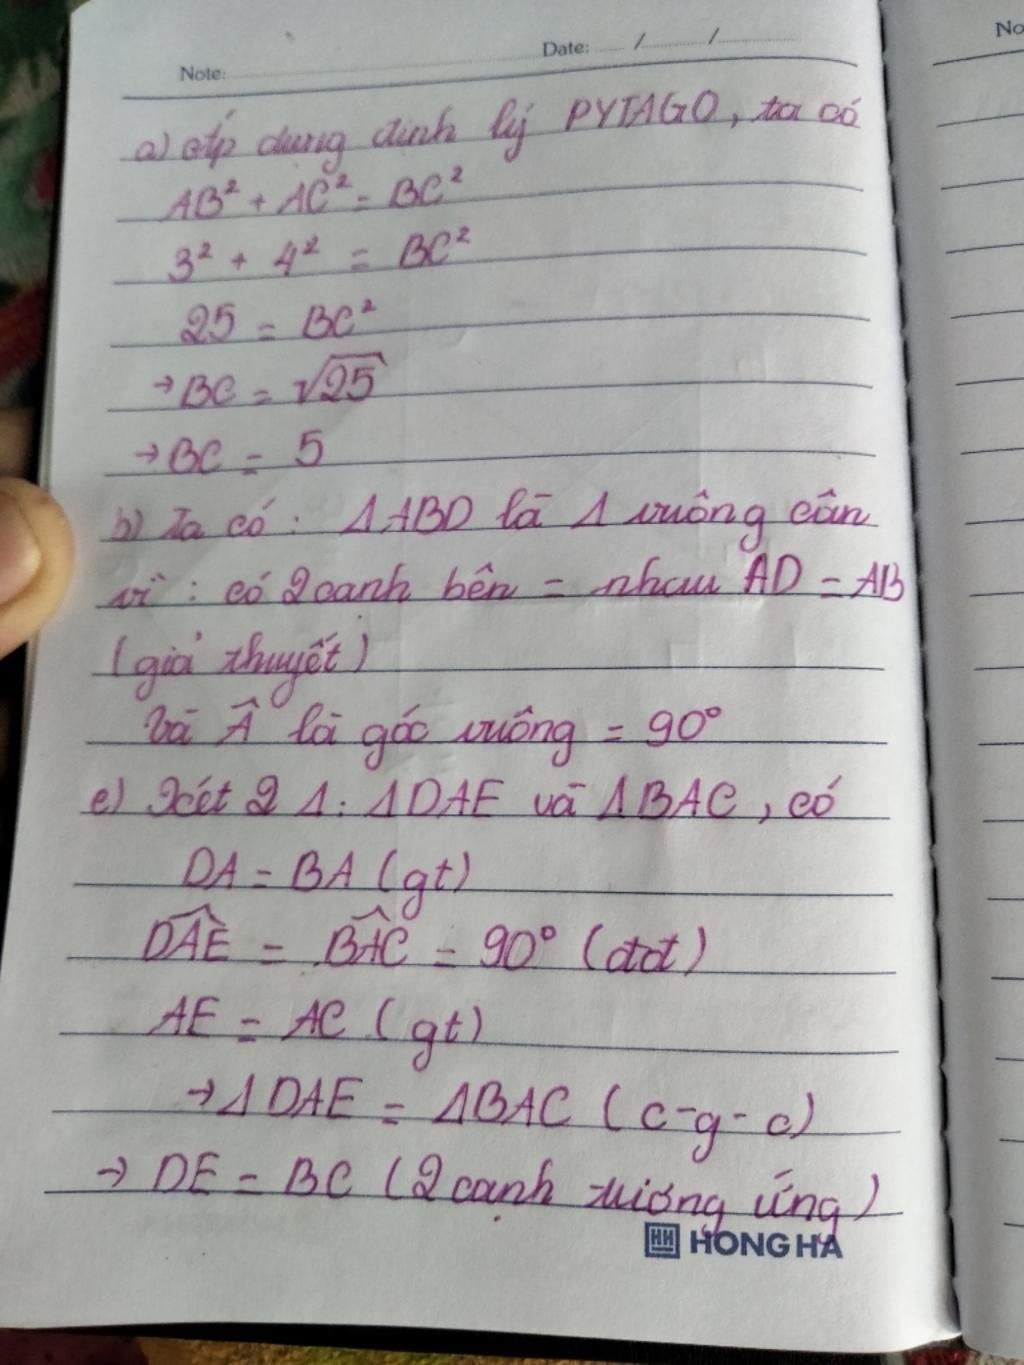 Note: Date: / /
No
a) Áp dụng định lý PYTAGO, ta có
AB² + AC² = BC²
3² + 4² = BC²
25 = BC²
→ BC = √25
→ BC = 5
b) Ta có: ΔABD là Δ vuông cân
vì: có 2 cạnh bên = nhau AD = AB
(giả thuyết)
Và Â là góc vuông = 90°
c) Xét 2 Δ: ΔDAE và ΔBAC, có
DA = BA (gt)
DAE = BAC = 90° (đđ)
AE = AC (gt)
→ ΔDAE = ΔBAC (c-g-c)
→ DE = BC (2 cạnh tương ứng)
HH HONG HA